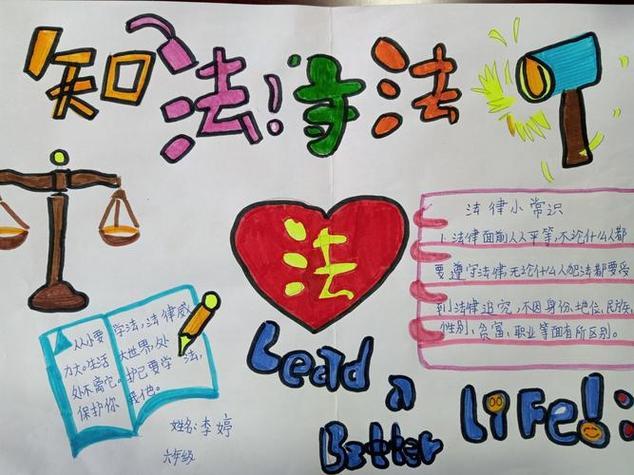 知法!守法
法
法律小常识
1、法律面前人人平等,不论什么人都
要遵守法律,无论什么人犯法都要受
到法律追究,不因身份、地位、民族、
性别、贫富、职业等面有所区别。
从小要学法,法律威
力大。生活大世界,处
处不离它。护己要学法,
保护你我他。
姓名:李婷
六年级
Lead a
Better LiFe!